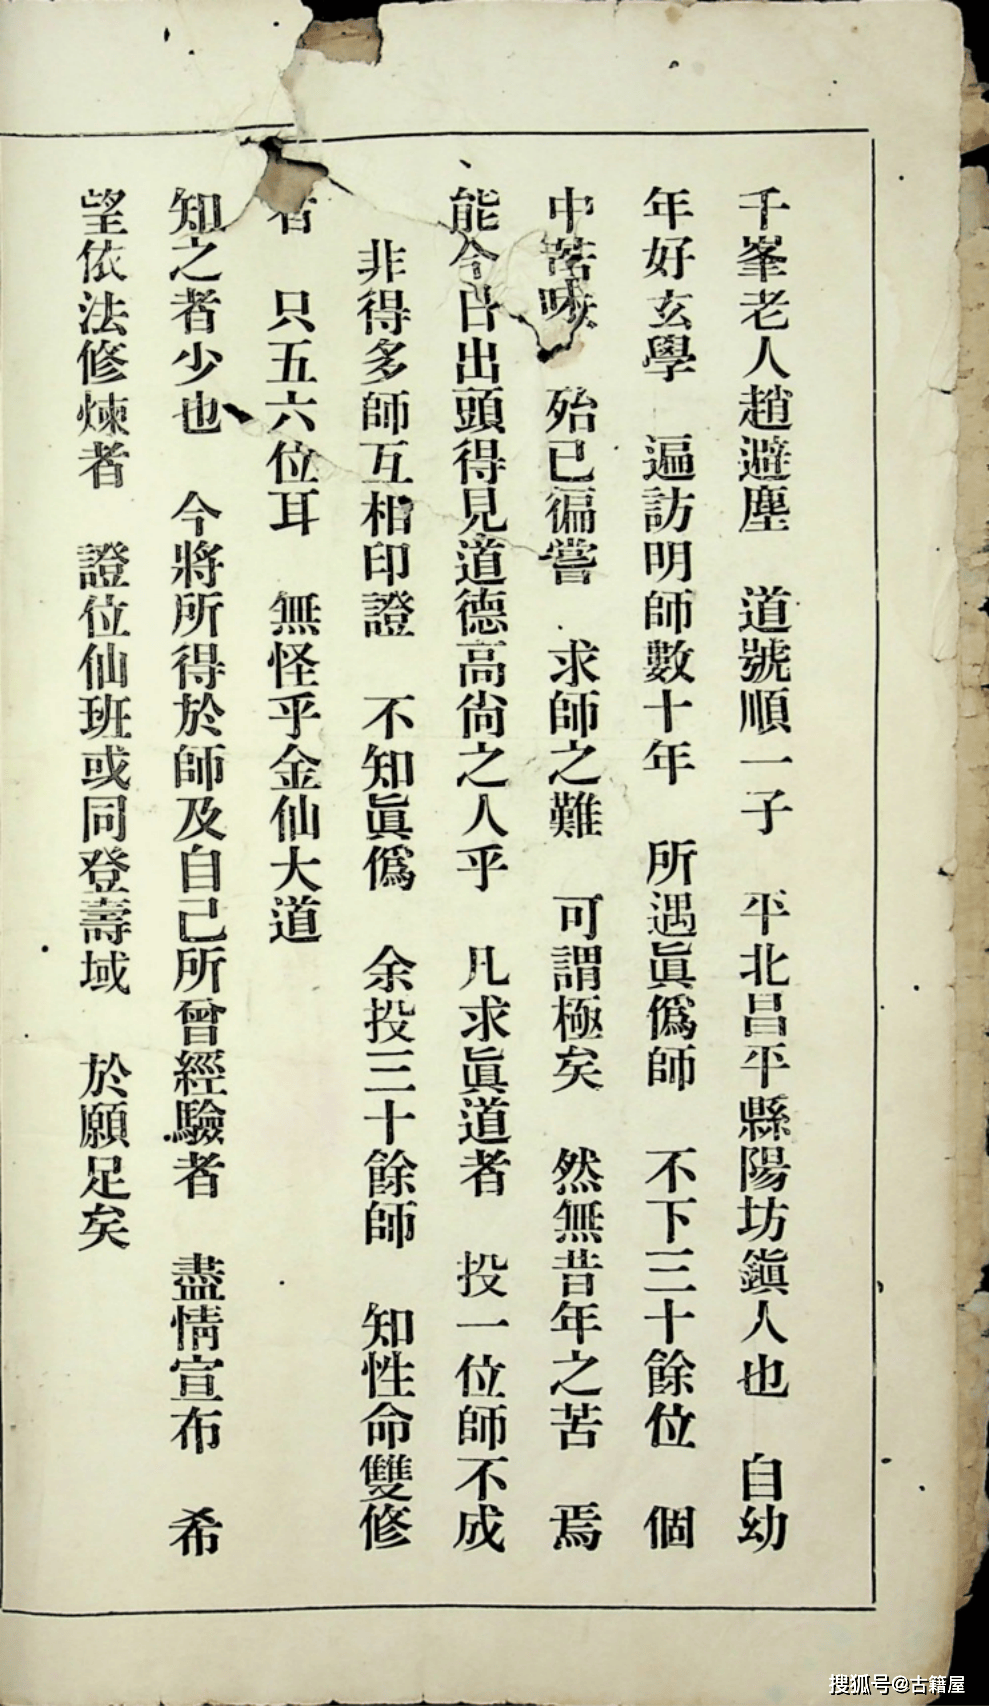 千峯老人趙避塵　道號順一子　平北昌平縣陽坊鎭人也　自幼
年好玄學　遍訪明師數十年　所遇眞僞師　不下三十餘位　個
中苦味　殆已徧嘗　求師之難　可謂極矣　然無昔年之苦　焉
能今日出頭得見道德高尙之人乎　凡求眞道者　投一位師不成
非得多師互相印證　不知眞僞　余投三十餘師　知性命雙修
者　只五六位耳　無怪乎金仙大道
知之者少也　今將所得於師及自己所曾經驗者　盡情宣布　希
望依法修煉者　證位仙班或同登壽域　於願足矣
搜狐号@古籍屋